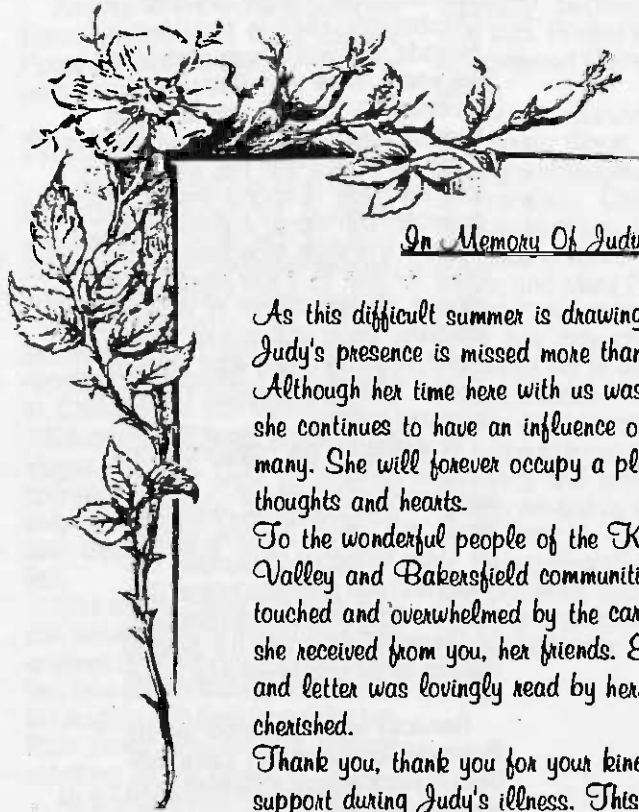 In Memory Of Judy
As this difficult summer is drawing
Judy's presence is missed more than
Although her time here with us was
she continues to have an influence o
many. She will forever occupy a pl
thoughts and hearts.
To the wonderful people of the K
Valley and Bakersfield communiti
touched and overwhelmed by the car
she received from you, her friends. E
and letter was lovingly read by her
cherished.
Thank you, thank you for your kind
support during Judy's illness. This